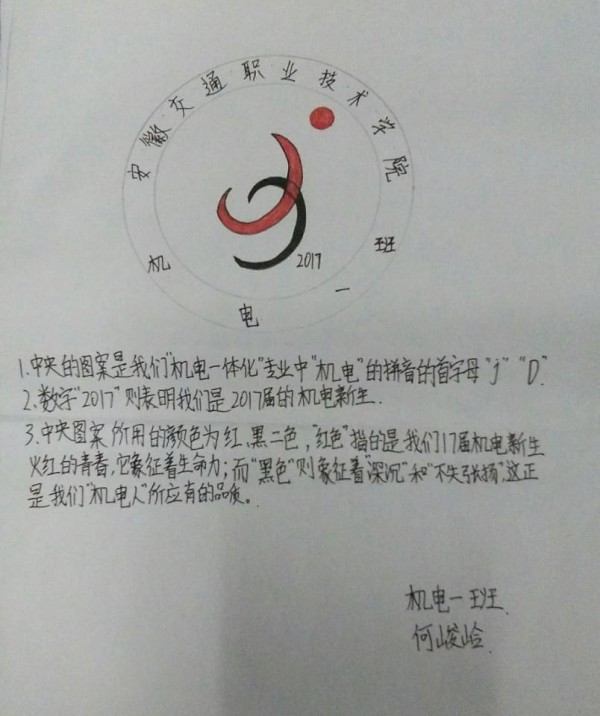 安徽交通职业技术学院
2017
机电一班
1.中央的图案是我们"机电一体化"专业中"机电"的拼音的首字母"j""D".
2.数字"2017"则表明我们是2017届的机电新生.
3.中央图案所用的颜色为红、黑二色,"红色"指的是我们17届机电新生
火红的青春,它象征着生命力;而"黑色"则象征着"深沉"和"不失张扬",这正
是我们"机电人"所应有的品质。
机电一班
何峻岭